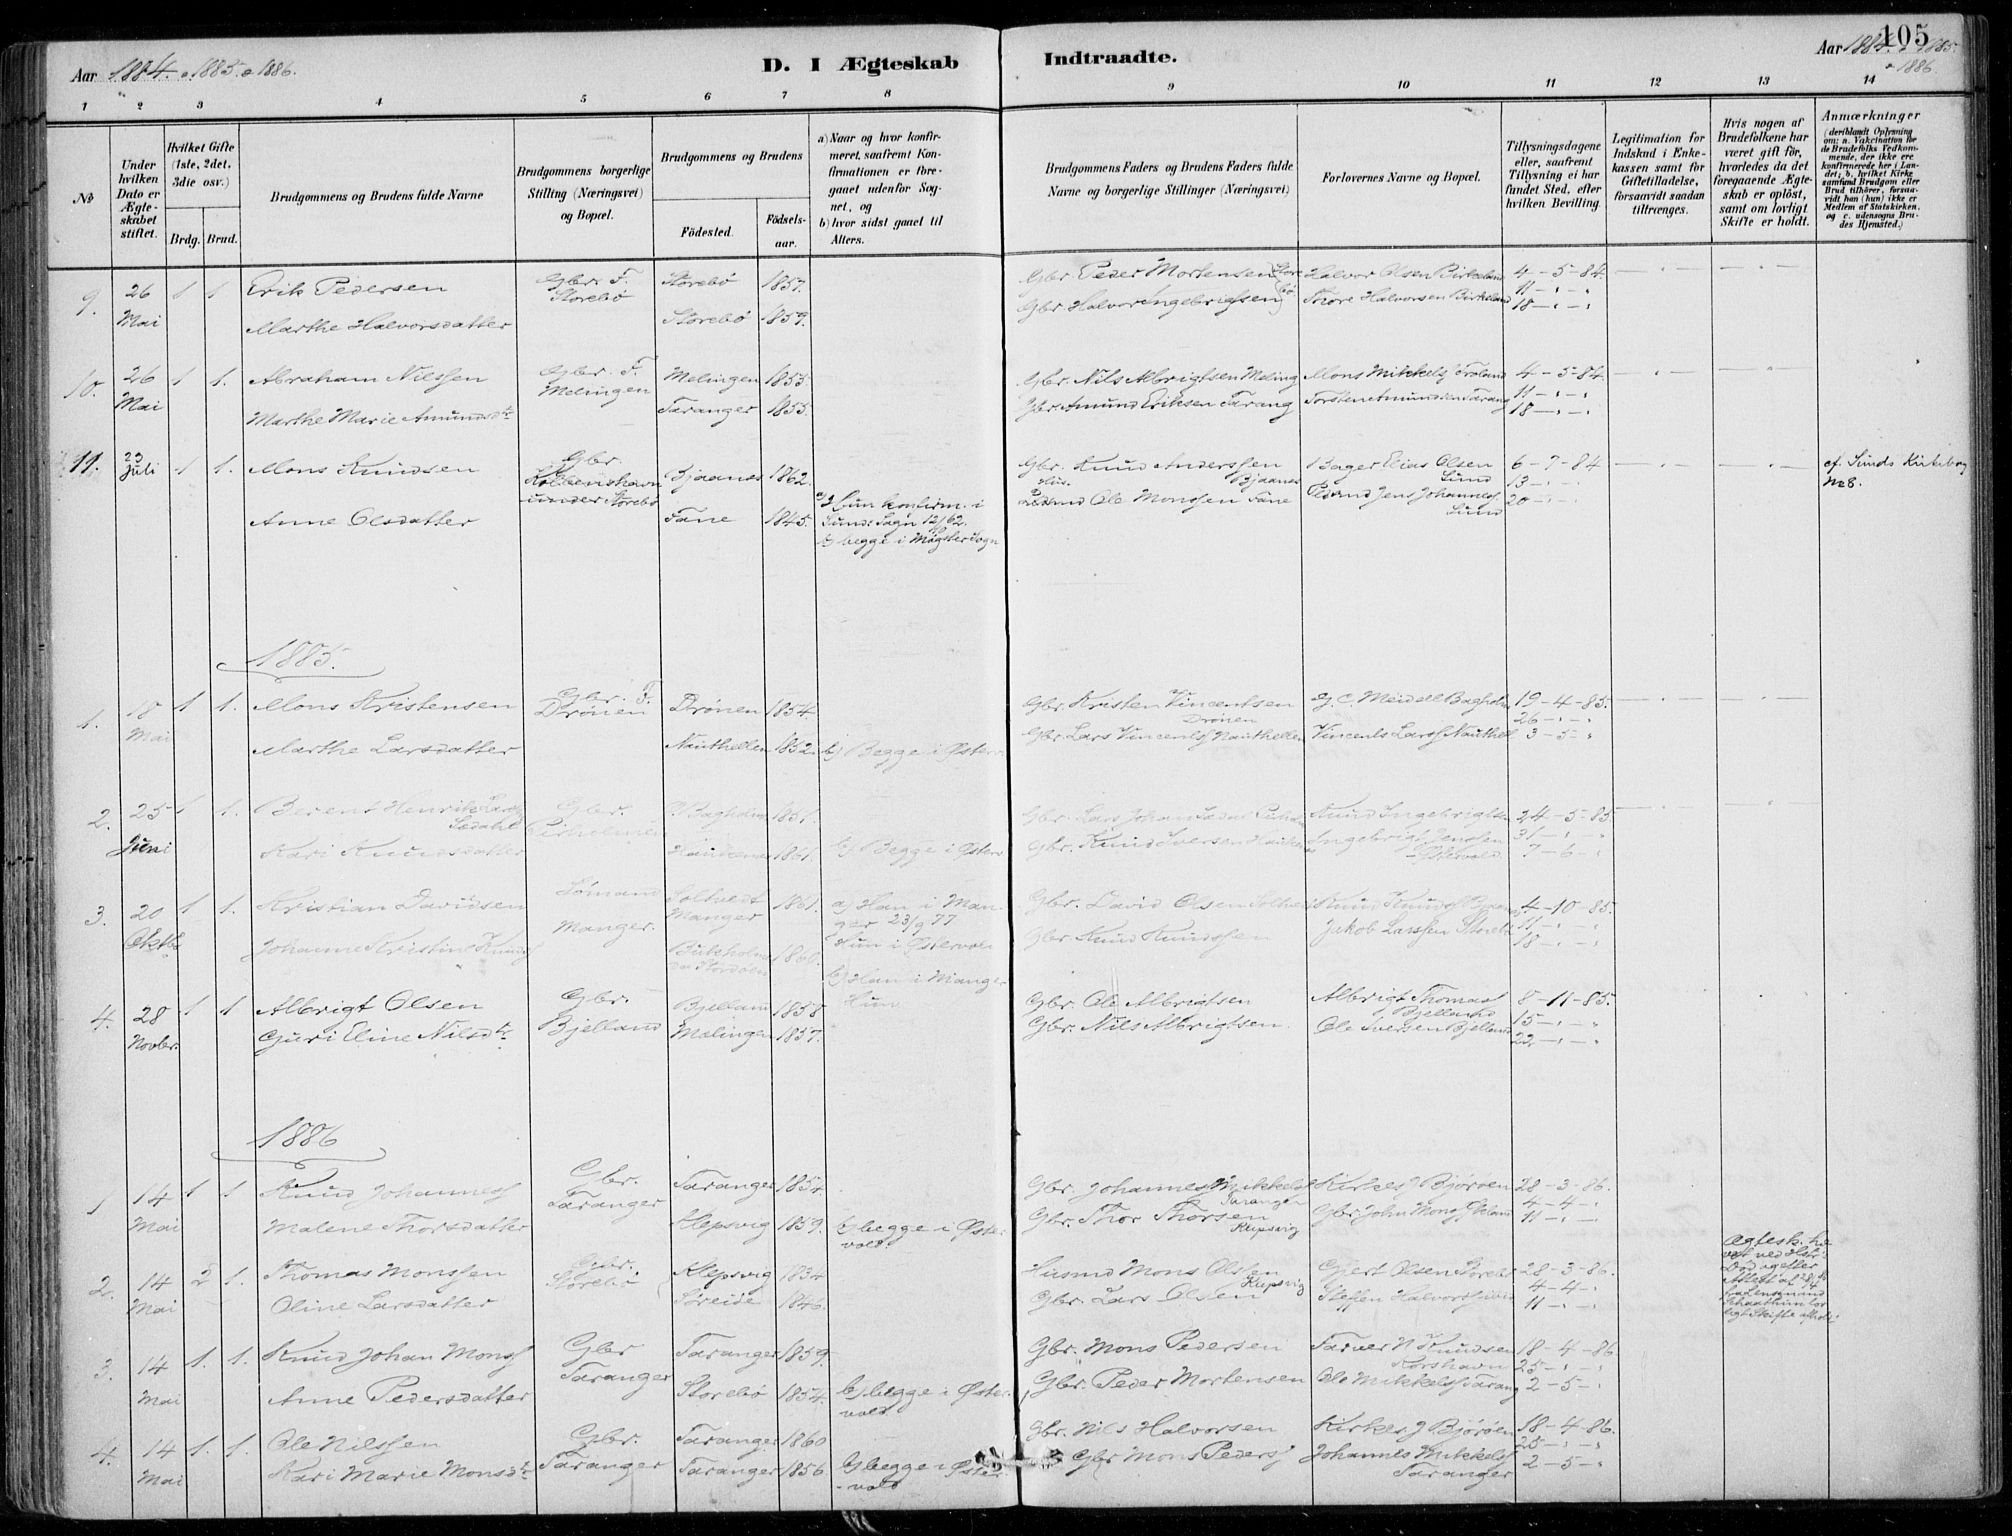 105
Aar 1884. o 1885. o 1886.
D. I Ægteskab Indtraadte.
Aar 1884. o 1885.
o 1886.
1 2 3 4 5 6 7 8 9 10 11 12 13 14
№
Under hvilken Dato er Ægteskabet stiftet.
Hvilket Gifte (1ste, 2det, 3die osv.)
Brdg. Brud.
Brudgommens og Brudens fulde Navne
Brudgommens borgerlige Stilling (Næringsvei) og Bopæl.
Brudgommens og Brudens
Födested.
Födselsaar.
a) Naar og hvor konfirmeret, saafremt Konfirmationen er foregaaet udenfor Sognet, og
b) hvor sidst gaaet til Alters.
Brudgommens Faders og Brudens Faders fulde Navne og borgerlige Stillinger (Næringsvei)
Forlovernes Navne og Bopæl.
Tillysningsdagene eller, saafremt Tillysning ei har fundet Sted, efter hvilken Bevilling.
Legitimation for Indskud i Enkekassen samt for Giftetilladelse, forsaavidt saadan tiltrænges.
Hvis nogen af Brudefolkene har været gift för, hvorledes da det foregaaende Ægteskab er oplöst, samt om lovligt Skifte er holdt.
Anmærkninger
(deriblandt Oplysning om: a. Vakcination for de Brudefolks Vedkommende, der ikke ere konfirmerede her i Landet; b. hvilket Kirkesamfund Brudgom eller Brud tilhörer, forsaavidt han (hun) ikke er Medlem af Statskirken, og c. udensogns Brudes Hjemsted.)
9. 26 Mai 1 1. Erik Pedersen Gbr. F. Storebø Storebø 1857. Gbr. Peder Mortensen Storebø Halvor Olsen Birkeland 4-5-84.
Marthe Halvorsdatter Storebø 1859. Gbr Halvor Ingebrigtsen Thore Halvorsen Birkeland 11-"-"
18-"-"
10. 26 Mai 1 1. Abraham Nilssen Gbr. F. Melingen Melingen 1855. Gbr. Nils Albrigtsen Meling Mons Mikkels Troland 4-5-84
Marthe Marie Amundsdtr Taranger 1855. Gbr. Amund Eriksen Tarang Torsten Amundsen Tarang 11-"-"
18-"-"
11. 29 Juli 1 1. Mons Knudsen Gbr. Kobbenshavn under Storebø Bjaanes 1862. Gbr. Knud Anderssen Bjaanes Bager Elias Olsen Lund 6-7-84 cf. Sunds Kirkebog
№8.
Anne Olsdatter Fane 1845. a) Hun konfirm. i
Sunds Sogn 12/62.
b) begge i Møgster Sogn
Ole Monssen Fane Jens Johanness Lund 13-"-"
20-"-"
1885.
1. 18 Mai 1 1. Mons Kristensen Gbr. F. Drönen Drönen 1854. Gbr. Kristen Vincentsen Drönen G. C. Meidell Bagholm 19-4-85.
Marthe Larsdatter Nauthellen 1852. b) Begge i Østerv. Gbr. Lars Vincents Nauthellen Vincents Larss Nauthell 26-"-"
3-5-"
2. 25 Juni 1 1. Berent Henrik Larss Sædahl Gbr. Bagholm 1851. Gbr. Lars Johan Knud Ingebrigtsen 24-5-85.
Kari Knudsdatter 1861. b) Begge i Østerv. Gbr. Knud Iversen Ingebrigt Jenssen Østervold 31-"-"
7-6-"
3. 20 Oktbr 1 1. Kristian Davidsen Sömand Manger. Soltvedt Manger 1861. a) Han i Manger 23/9 77 Gbr. David Olsen Soltvedt Knud Knuds 4-10-85.
Johanne Kristine Knuds 1860. Hun i Østervold
b) Han i Manger
Hun
Gbr. Knud Knudssen Jakob Larssen Storebø 11-"-"
18-"-"
4. 28 Novbr. 1 1 Albrigt Olsen Gbr. Bjelland Bjelland 1858 Gbr. Ole Albrigtsen Albrigt Thomass Bjelland 8-11-85.
Guri Eline Nilsdtr Melingen 1857. Gbr. Nils Albrigtsen. Ole Iversen Bjelland 15-"-"
22-"-"
1886
1 14 Mai 1 1 Knud Johanness Gbr. Taranger Taranger 1854. Gbr. Johannes Mikkels Taranger Kirkes. J Björöen 28-3-86.
Malene Thorsdatter Klepsvig 1859. b) begge i Østervold. Gbr. Thor Thorsen Klepsvig Gbr. John Mons 4-4-"
11-"-"
2. 14 Mai 2 1. Thomas Monssen Gbr. Storebø Klepsvig 1834 Husmd Mons Olssen Klepsvig Gjert Olsen Storebø 28-3-86.
Oline Larsdatter Søreide 1846. Gbr. Lars Olsen Steffen Halvords 4-4-"
11-"-"
3. 14 Mai 1. 1. Knud Johan Monss Gbr Taranger Taranger 1859. Gbr. Mons Pedersen Farver N Knudsen Korshavn 18-4-86
Anne Pedersdatter Storebø 1854. b) begge i Østervold. Gbr. Peder Mortensen Ole Mikkels Tarang 25-"-"
2-5-"
4. 14 Mai 1. 1. Ole Nilssen Gbr. Taranger Taranger 1860 Gbr. Nils Halvorsen Kirkes. J Björöen 18-4-86.
Kari Marie Monsdtr Taranger 1856. b) begge i Østervold Gbr Mons Peders Johannes Mikkels Taranger 25-"-"
2-5-"